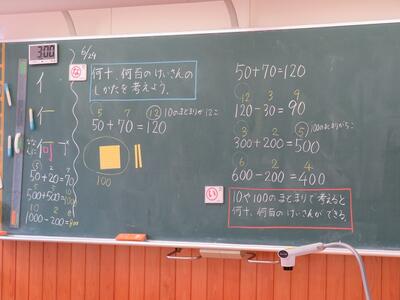 3:00
5/29
め
何十、何百のけいさんの
しかたを考えよう。
5 7 ⑫ 10のまとまりが12こ
50+70=120
100
イ
仁
何
⑤ 2 7
50+20=70
5 5 10
500+500=1000
10 2 8
1000-200=800
50+70=120
12 3 9
120-30=90
3 2 ⑤ 100のまとまりが5こ
300+200=500
6 2 4
600-200=400
い
10や100のまとまりで考えると
何十、何百のけいさんができる。